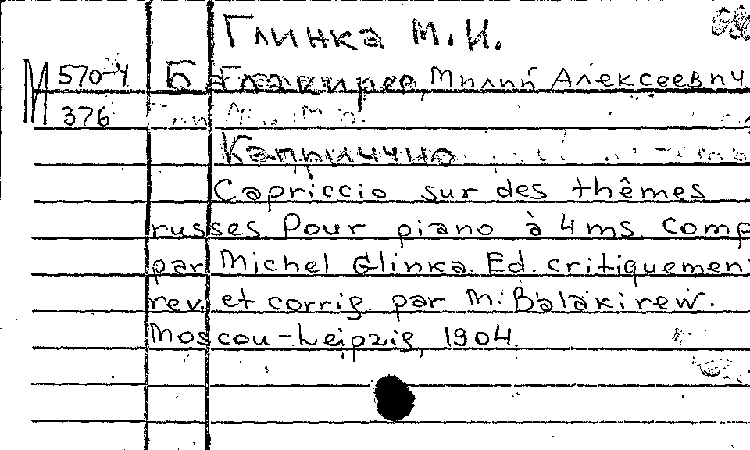 Глинка М.И.
М 570-4 Балакирев, Милий Алексеевич
376
Каприччио
Capriccio sur des thêmes
russes Pour piano à 4 ms Comp
par Michel Glinka. Ed. critiquemen
rev. et corrig par M. Balakirew.
Moscou-Leipzig, 1904